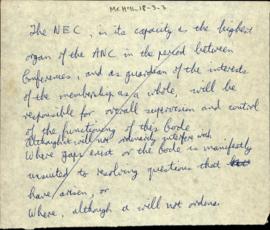 McH91-18-3-3
The NEC, in its capacity as the highest
organ of the ANC in the period between
Conferences, and as guardian of the interests
of the membership as a whole, will be
responsible for overall supervision and control
of the functioning of this Code
although it will not ordinarily interfere with
Where gaps exist or the Code is manifestly
unsuited to resolving questions that
have arisen, or
Where, although a will not ordina.